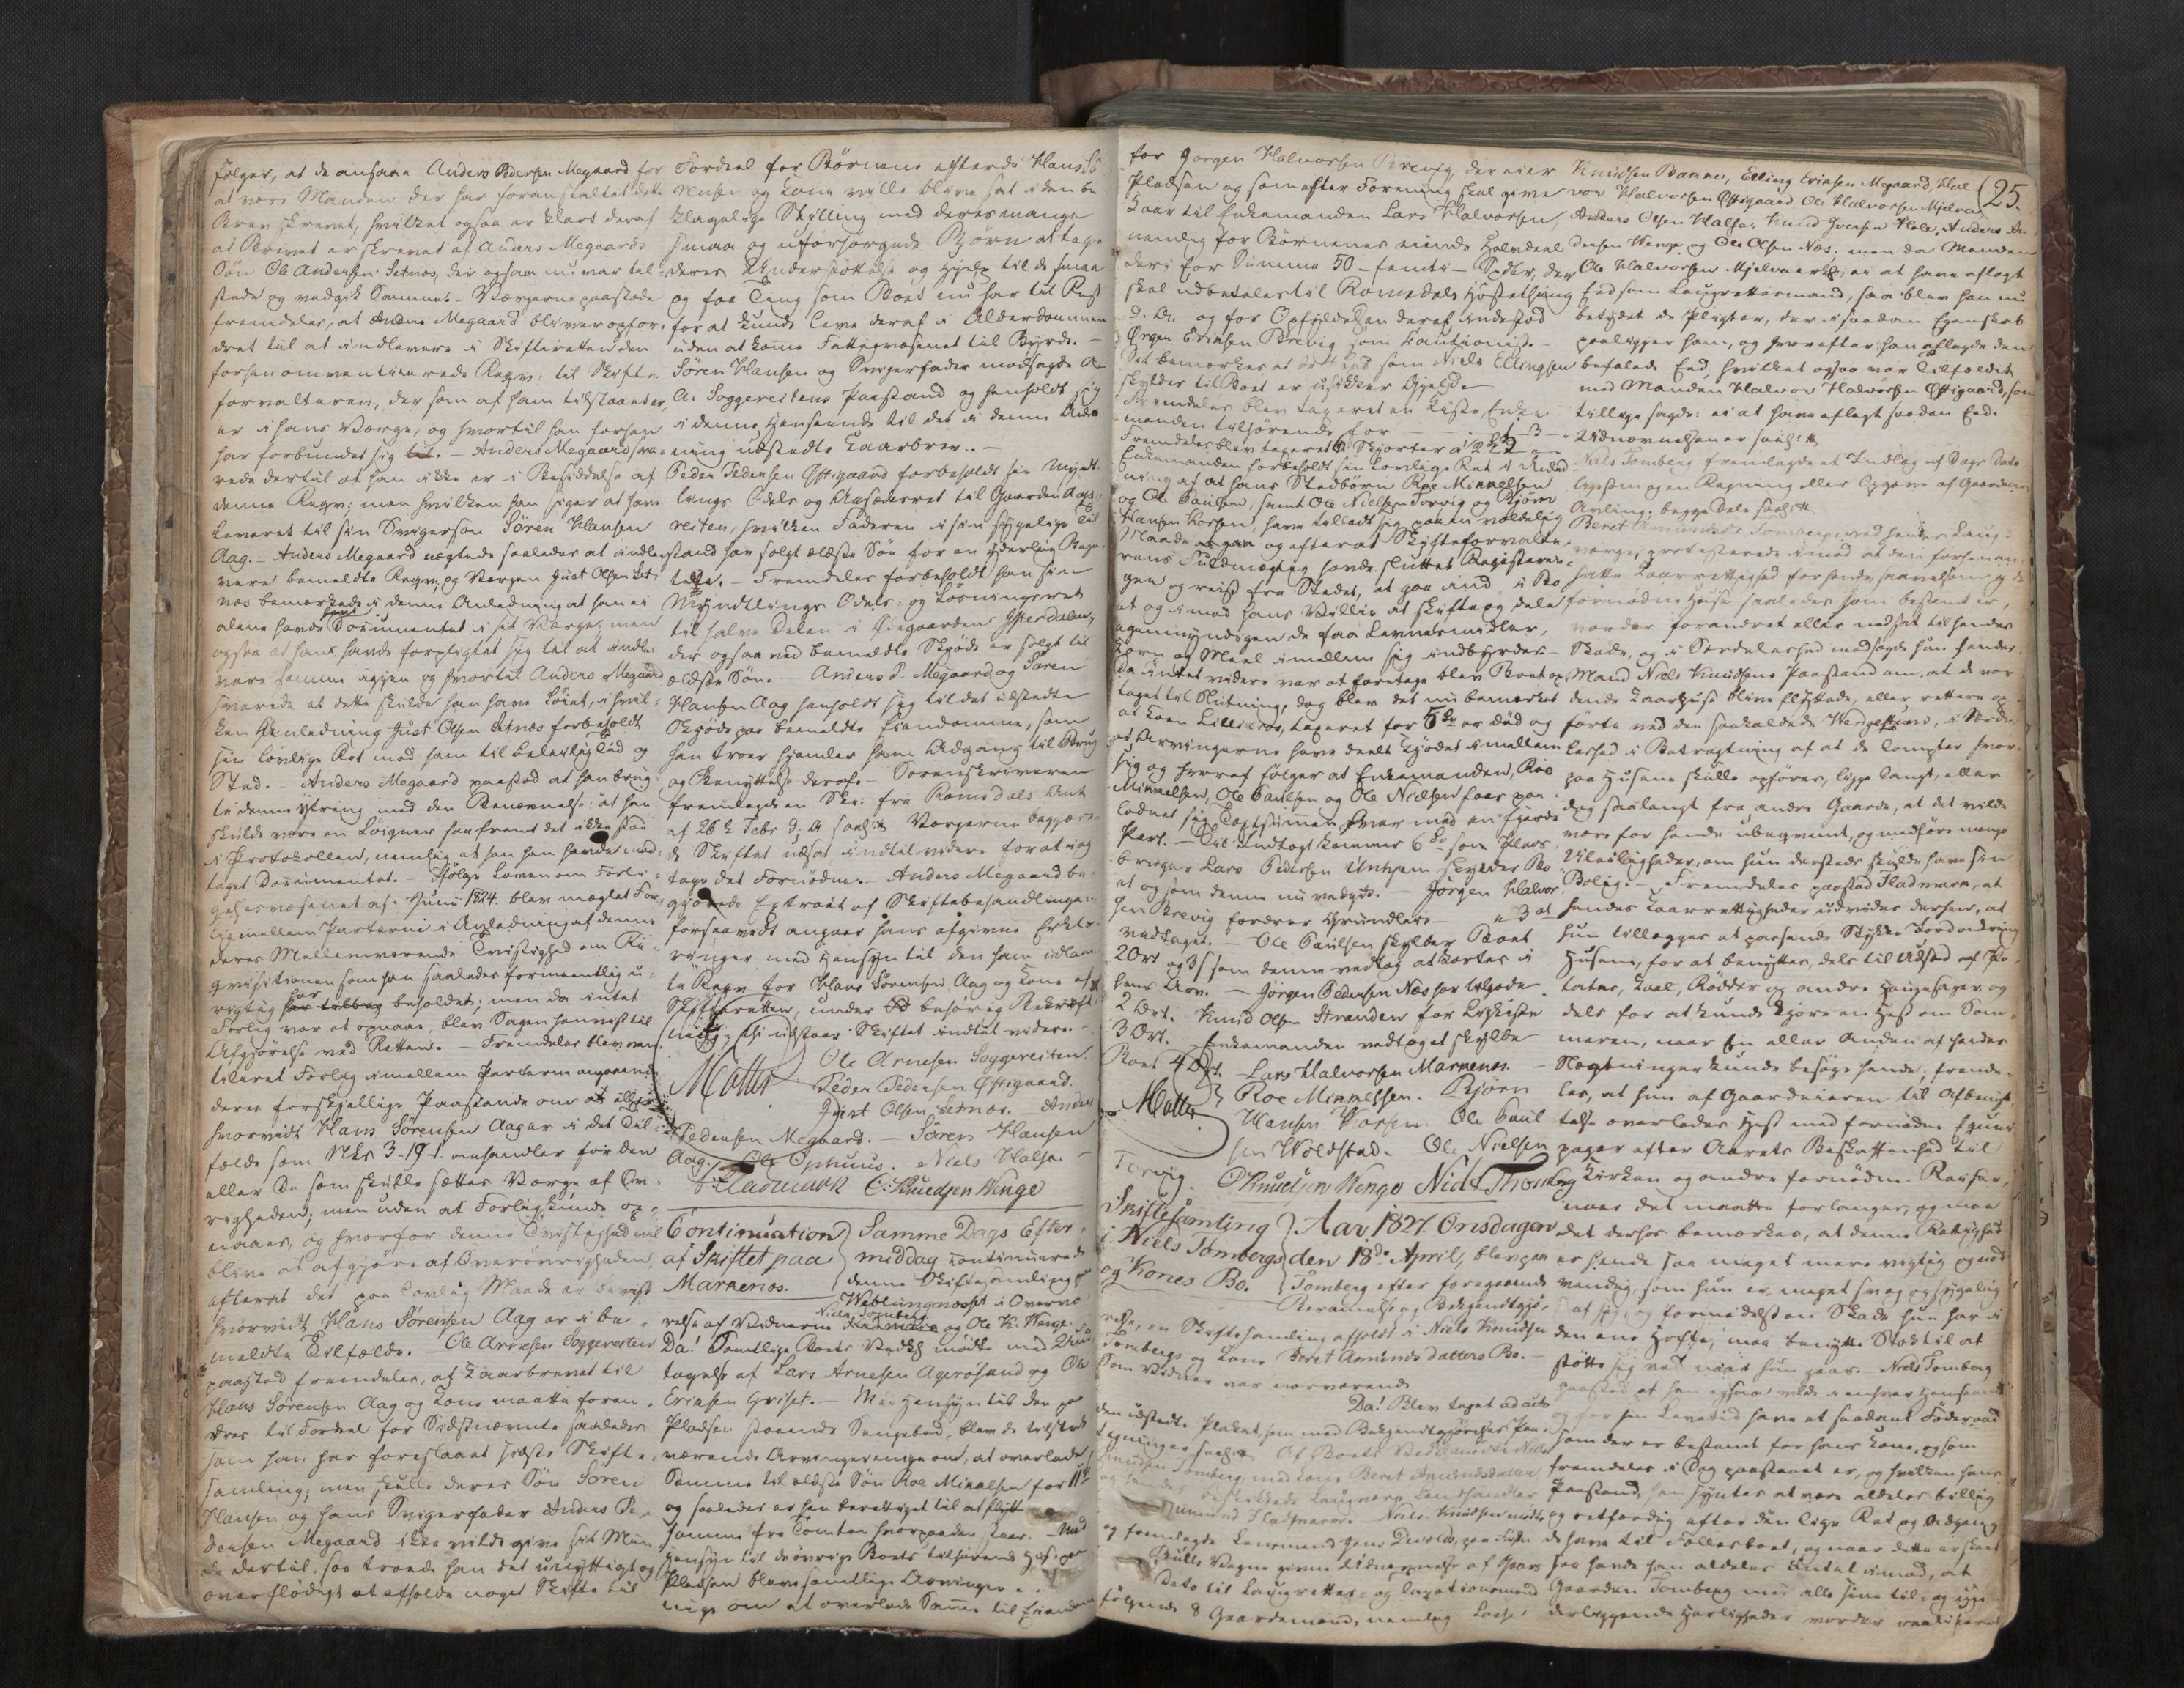 følger, at de ansaae Anders Pedersen Megaard for
at være Manden der har foranstaltet dette
Brev skrevet, hvilket ogsaa er klart deraf
at Brevet er skrevet af Anders Megaards
Søn Ole Andersen Setnæs, der ogsaa nu var til
stede og vedgik Samme. – Værgerne paastode
fremdeles, at Anders Megaard bliver opfor-
dret til at indlevere i Skifteretten den
forhen omventilerede Regn: til Skifte-
forvalteren, der som af ham tilstaaet er,
er i hans Værge, og hvortil han forhen
har forbundet sig. – Anders Megaard sva-
rede dertil at han ikke er i Besiddelse af
denne Regn: men hvilken han siger at have
leveret til sin Svigersøn Søren Hansen
Aag. – Anders Megaard nægtede saaledes at indle-
vere bemeldte Regn, og Værgen Just Olsen Set-
næs bemærkede i denne Anledning at han ei
alene havde havt Documentet i sit Værge, men
ogsaa at han havde forpligtet sig til at indle-
vere samme igjen og hvortil Anders Megaard
svarede at dette skulde han have løiet, i hvil-
ken Anledning Just Olsen Setnæs forbeholdt
sin lovlige Ret mod ham til beleilig Tid og
Sted. – Anders Megaard paastod at han brug-
te denne Ytring med den Benævnelse: at han
skulde være en Løigner saafremt det ikke stod
i Protokollen, nemlig at han havde mod-
taget Documentet. – Ifølge Loven om Forli-
gelsesvæsenet af Juni 1824. blev mæglet For-
lig mellem Parterne i Anledning af denne
deres Mellemværende Tvistighed om Re-
qvisitionen som han saaledes formeentlig u-
rigtig har beholdet; men da intet
Forlig var at opnaae, blev Sagen henvist til
Afgjørelse ved Retten. – Fremdeles blev ven-
tileret Forlig imellem Parterne angaaende
deres forskjellige Paastande om
hvorvidt Hans Sørensen Aag er i det Til-
fælde som N: L: 3-19-1. omhandler for den
eller de som skulle sættes Værge af Øv-
righeden; men uden at Forlig kunde op-
naaes, og hvorfor denne Tvistighed vil
blive at afgjøre af Overøvrigheden
efterat det paa lovlig Maade er bevist
hvorvidt Hans Sørensen Aag er i be-
meldte Tilfælde. – Ole Arnesen Soggereiten
paastod fremdeles, at Kaarbrevet til
Hans Sørensen Aag og Kone maatte foran-
dres til Fordeel for Sidstnævnte saaledes
som han har foreslaaet sidste Skifte-
samling; men skulle deres Søn Søren
Hansen og hans Svigerfader Anders Pe-
dersen Megaard ikke vilde give sit Min-
de dertil, saa troede han det unyttigt og
overflødigt at afholde noget Skifte til
Fordeel for Børnene efterdi Hans Sø-
rensen og Kone vilde blive sat i den be-
klagelige Stilling med deres mange
smaa og uforsørgede Børn at tage
deres Understøttelse og Hjelp til de smaa
og faa Ting som Boet nu har til Rest
for at kunde leve deraf i Alderdommen
uden at komme Fattigvæsenet til Byrde. –
Søren Hansen og Svigerfader modsagde O-
le Soggereitens Paastand og henholdt sig
i denne Henseende til det i denne Anled-
ning udstedte Kaarbrev. –
Peder Pedersen Østigaard forbeholdt sin Mynd-
lings Odels og Aasædesret til Gaarden Sogge-
reiten, hvilken Faderen i sin sygelige Til-
stand har solgt ældste Søn for en yderlig Baga-
telle. – Fremdeles forbeholdt han sin
Myndtlings Odels- og Løsningsret
til halve Delen i Ødegaarden Isterdalen,
der ogsaa ved bemeldte Skjøde er solgt til
ældste Søn. – Anders P. Megaard og Søren
Hansen Aag henholdt sig til det udstedte
Skjøde paa bemeldte Eiendomme, som
han troer hjemler ham Adgang til Brug
og Benyttelse deraf. – Sorenskriveren
fremlagde en Skr: fra Romsdals Amt
af 26de Febr d: A saal: – Værgerne begjær-
te Skiftet udsat indtil videre for at iag-
tage det Fornødne. – Anders Megaard be-
gjærede Extract af Skiftebehandlingen
forsaavidt angaaer hans afgivne Erklæ-
ringer med Hensyn til den ham
te Regn for Hans Sørensen Aag og Kone af
Skifteretten, under behørig Bekræft-
ning, thi udstaaer Skiftet indtil videre. –
Motter Ole Arnesen Soggereiten
Peder Pedersen Østigaard.
Just Olsen Setnæs. – Anders
Pedersen Megaard. – Søren Hansen
Aag. – Ole Ophuus. Niels Halse. –
Fladmark E: Knudsen Wenge
Continuation
af Skiftet paa
Marnenæs.
Samme Dags Efter-
middag continuerede
denne Skiftesamling paa
Weblungnæsset i Overvæ-
relse af Vidnerne Niels Tomberg og Ole K. Wenge.
Da! Samtlige Boets Vedk: mødte med Und-
tagelse af Lars Arnesen Agerøsund og Ole
Eriksen Griset. – Med Hensyn til den paa
Pladsen staaende Sengebod, bleve de tilstede-
værende Arvinger enige om, at overlade
Samme til ældste Søn Roe Mikkelsen for 11
og saaledes er han berettiget til at flytte
samme fra Tomten hvorpaa den staaer. – Med
Hensyn til de øvrige Boets tilhørende Huse paa
Pladsen bleve samtlige Arvinger e-
nige om at overlade Samme til Eieren
25.
for Jørgen Halvorsen Brevig, der eier
Pladsen og som efter Forening skal give
Kaar til Enkemanden Lars Halvorsen,
nemlig for Børnenes eiende Halvdeel
deri for Summa 50 – femti – Spdlr, der
skal udbetales til Romsdals Høstething
d. A. og for Opfyldelsen deraf indestod
Ørgen Eriksen Brevig som Cautionist. –
Det bemærkes at det som Niels Ellingsen
skylder til Boet er usikker Gjeld. –
Fremdeles blev taxeret en Kiste, Enke-
manden tilhørende for – 1 – 3 –
Fremdeles blev taxeret 6 Skjorter á
Enkemanden forbeholdt sin lovlige Ret i Anled-
ning af at hans Stedbørn Roe Mikkelsen
og Ole Paulsen, samt Ole Nielsen Torvig og Bjørn
Hansen Horsen, have tilladt sig paa en voldelig
Maade og efterat Skifteforvalte-
rens Fuldmægtig havde sluttet Registerin-
gen og reist fra Stedet, at gaa ind i Bo-
et og imod hans Villie at skifte og dele
egenmyndigen de faa Levnetsmidler,
Korn og Meel imellem sig indbyrdes. –
Da intet videre var at foretage blev Boet op-
taget til Slutning, dog blev det nu bemærket
at Koen Lillieros, taxeret for 5 er død og
at Arvingerne have deelt Kjødet imellem
sig og hvoraf følger at Enkemanden, Roe
Mikkelsen, Ole Paulsen og Ole Nielsen faae paa-
lodnet sig Taxtsummen hver med en fjerde
Part. – Til Indtægt kommer 6 som Plads-
bruger Lars Pedersen Unhjem skylder Bo-
et og som denne nu vedgik. – Jørgen Halvor-
sen Brevig fordrer Grundleie – 3
vedtaget. – Ole Paulsen skylder Boet
2 Ort og 3 s som denne vedtog at kortes i
hans Arv. – Jørgen Pedersen Næs har tilgode
2 Ort. Knud Olsen Stranden for Ligkiste
3 Ort. – Enkemanden vedtoges skylde
Boet 4 Ort. Lars Halvorsen Marnenæs. –
Motter Roe Mikkelsen. Bjørn
Hansen Horsen. Ole Paul-
sen Woldstad. Ole Nielsen
Torvig. O Knudsen Wenge Niels Thomberg
Skiftesamling
i Niels Tombergs
og Kones Bo.
Aar 1827. Onsdagen
den 18de April, blev paa
Tomberg efter foregaaende
Berammelse og Bekjendtgjø-
relse, en Skiftesamling afholdt i Niels Knudsen
Tombergs og Kone Beret Amundsdatters Bo. –
Som Vidner var nærværende
Da! Blev taget ad acta
den udstedte Placat, som med Bekjendtgjørelses Paa-
tegninger saal: Af Boets Vedkommende Niels
Knudsen Tomberg, med Kone Beret Amundsdatter
og hendes beskikkede Laugværge Lensmand
Amund Fladmark. – Niels Knudsen mødte
og fremlagde Lensmand
Skulle Wagne givne Udnævnelse af
Dato til Laugrettes- og Taxationsmænd
følgende 8 Gaardemænd, nemlig: Lasse
Knudsen Banne, Elling Eriksen Megaard, Hal-
vor Halvorsen Østigaard Ole Halvorsen Mjelva
Anders Olsen Halse, Knud Iversen Hole, Anders An-
dersen Wenge og Ole Olsen Næs; men da Manden
Ole Halvorsen Mjelva erkl: ei at have aflagt
Eed som Laugrettesmand, saa blev han nu
betydet de Pligter, der i saadan Egenskab
paaligger ham, og hvorefter han aflagde den
befalede Eed, hvilket ogsaa var Tilfældet
med Manden Halvor Halvorsen Østigaard, som
tillige sagde: ei at have aflagt saadan Eed.
Udnævnelsen er saal:
Niels Tomberg fremlagde et Indlæg af Dags Dato
ligesom og en Regning eller Opgave af Gaardens
Avling; begge Dele saal:
Beret Amundsd: Tomberg, ved hendes Laug-
værge, protesterede imod at den forhen an-
satte Kaarrettighed for hende, saavelsom og de
fornødne Huse saaledes som bestemt er,
vorder forandret eller nedsat til hendes
Skade, og i Særdeleshed modsagde hun hendes
Mand Niels Knudsens Paastand om, at de væ-
rende Kaarhuse blive flyttede, eller rettere op-
førte ved den saakaldede Wengestuen, i Særde-
leshed i Betragtning af at de Tomter hvor-
paa Husene skulle opføres, ligge langt, eller
dog saalangt fra andre Gaarde, at det vilde
være for hende ubeqvemt, og medføre mange
Uleiligheder, om hun dersteds skulde have sin
Bolig. – Fremdeles paastod Fladmark, at
hendes Kaarrettigheder udvides derhen, at
hun tillægges et passende Stykke Jord omkring
Husene, for at benyttes, dels til Udsæd af Po-
tater, Kaal, Rødder og andre Haugesager, og
dels for at kunde fore en Hest om Som-
meren, naar En eller Anden af hendes
Slægtninger kunde besøge hende; fremde-
les, at hun af Gaardeieren til Afbenyt-
telse overlades Hest med fornøden Equi-
page efter Aarets Beskaffenhed til
Kirken og andre fornødne Reiser,
naar det maatte forlanges, og maa
det derhos bemærkes, at denne Rettighed
er hende saa meget mere vigtig og nød-
vendig, som hun er meget svag og sygelig
af sig og formedelst en Skade hun har i
den ene Hofte, maa benytte Stok til at
støtte sig ved naar hun gaaer. – Niels Tomberg
paastod at han ogsaa vilde i enhver Henseende
og for sin Levetid have et saadant Føderaad
som der er bestemt for hans Kone, og som
fremdeles i Dag paastaaet er, og hvilken hans
Paastand han syntes at være aldeles billig
og retfærdig efter den lige Ret og Adgang
de have til Fællesboet, og naar dette er skeet
saa havde han aldeles Intet imod, at
Gaarden Tomberg med alle sine til- og under-
liggende Herligheder vorder realiseret